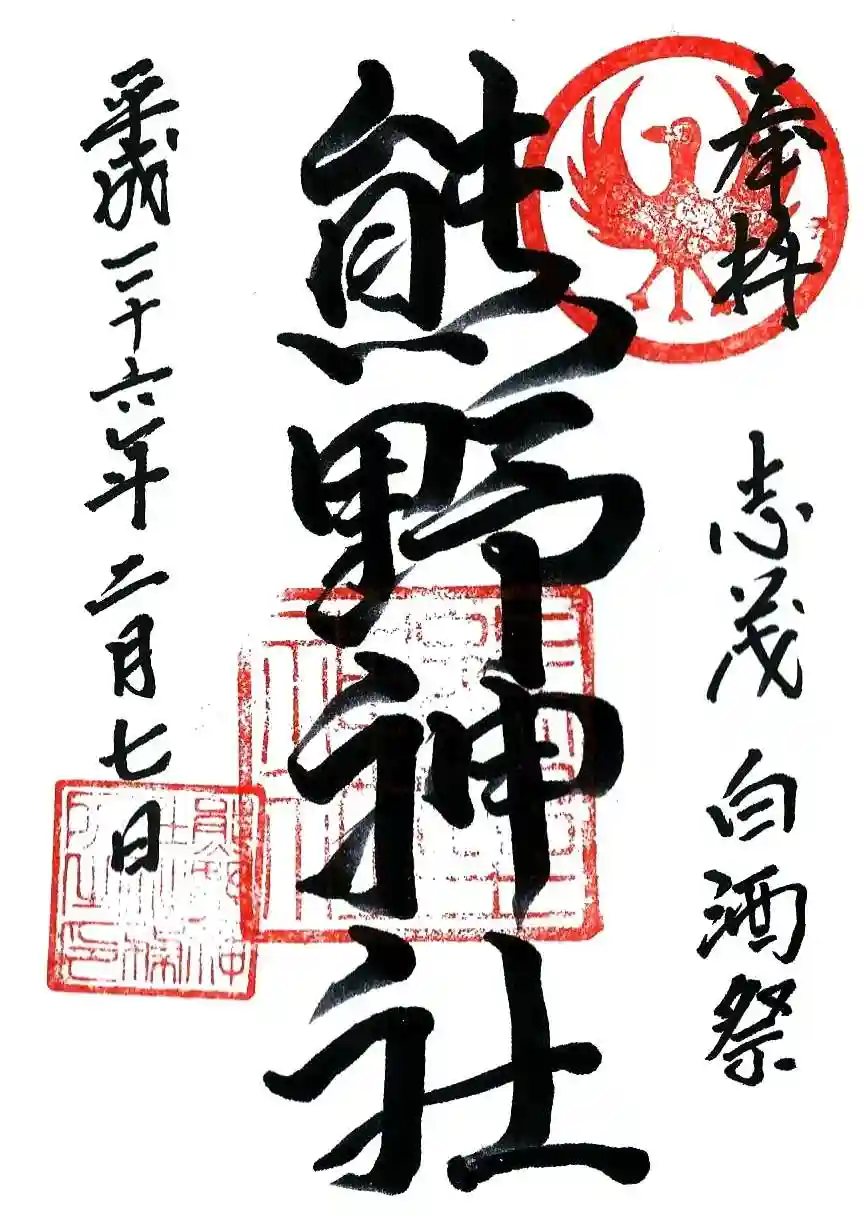 奉拝
志茂 白酒祭
熊野神社
平成二十六年二月七日